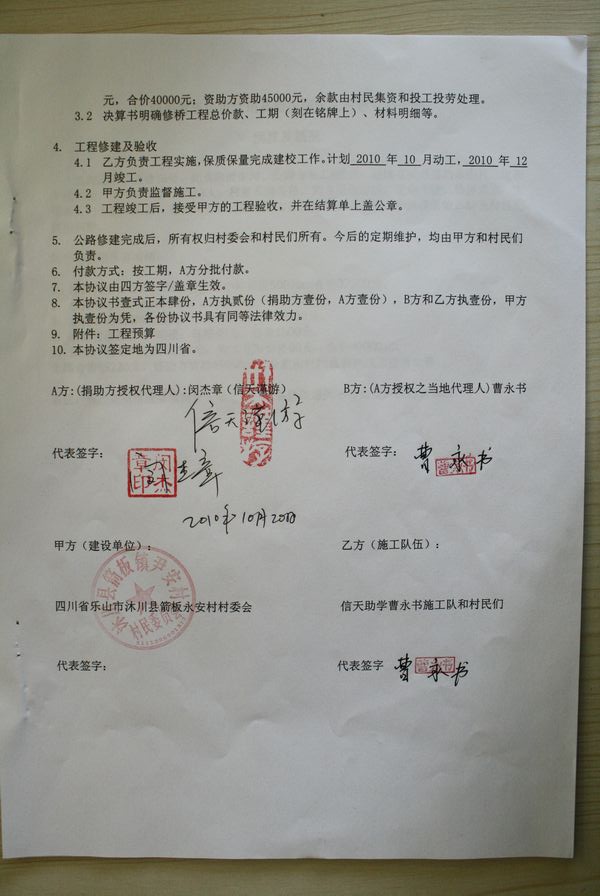 元，合价40000元；资助方资助45000元，余款由村民集资和投工投劳处理。
3.2 决算书明确修桥工程总价款、工期（刻在铭牌上）、材料明细等。
4. 工程修建及验收
4.1 乙方负责工程实施，保质保量完成建校工作。计划 2010 年 10 月动工，2010 年 12
月竣工。
4.2 甲方负责监督施工。
4.3 工程竣工后，接受甲方的工程验收，并在结算单上盖公章。
5. 公路修建完成后，所有权归村委会和村民们所有。今后的定期维护，均由甲方和村民们
负责。
6. 付款方式：按工期，A方分批付款。
7. 本协议由四方签字/盖章生效。
8. 本协议书壹式正本肆份，A方执贰份（捐助方壹份，A方壹份），B方和乙方执壹份，甲方
执壹份为凭，各份协议书具有同等法律效力。
9. 附件：工程预算
10. 本协议签定地为四川省。
A方:(捐助方授权代理人):闵杰章（信天谨游） B方:(A方授权之当地代理人)曹永书
信天谨游
代表签字： 代表签字： 曹永书
闵杰章印
闵杰章
2010年10月20日
甲方（建设单位）： 乙方（施工队伍）：
四川省乐山市沐川县箭板永安村村委会 信天助学曹永书施工队和村民们
沐川县箭板镇 安村
村民委员会
代表签字： 代表签字 曹永书